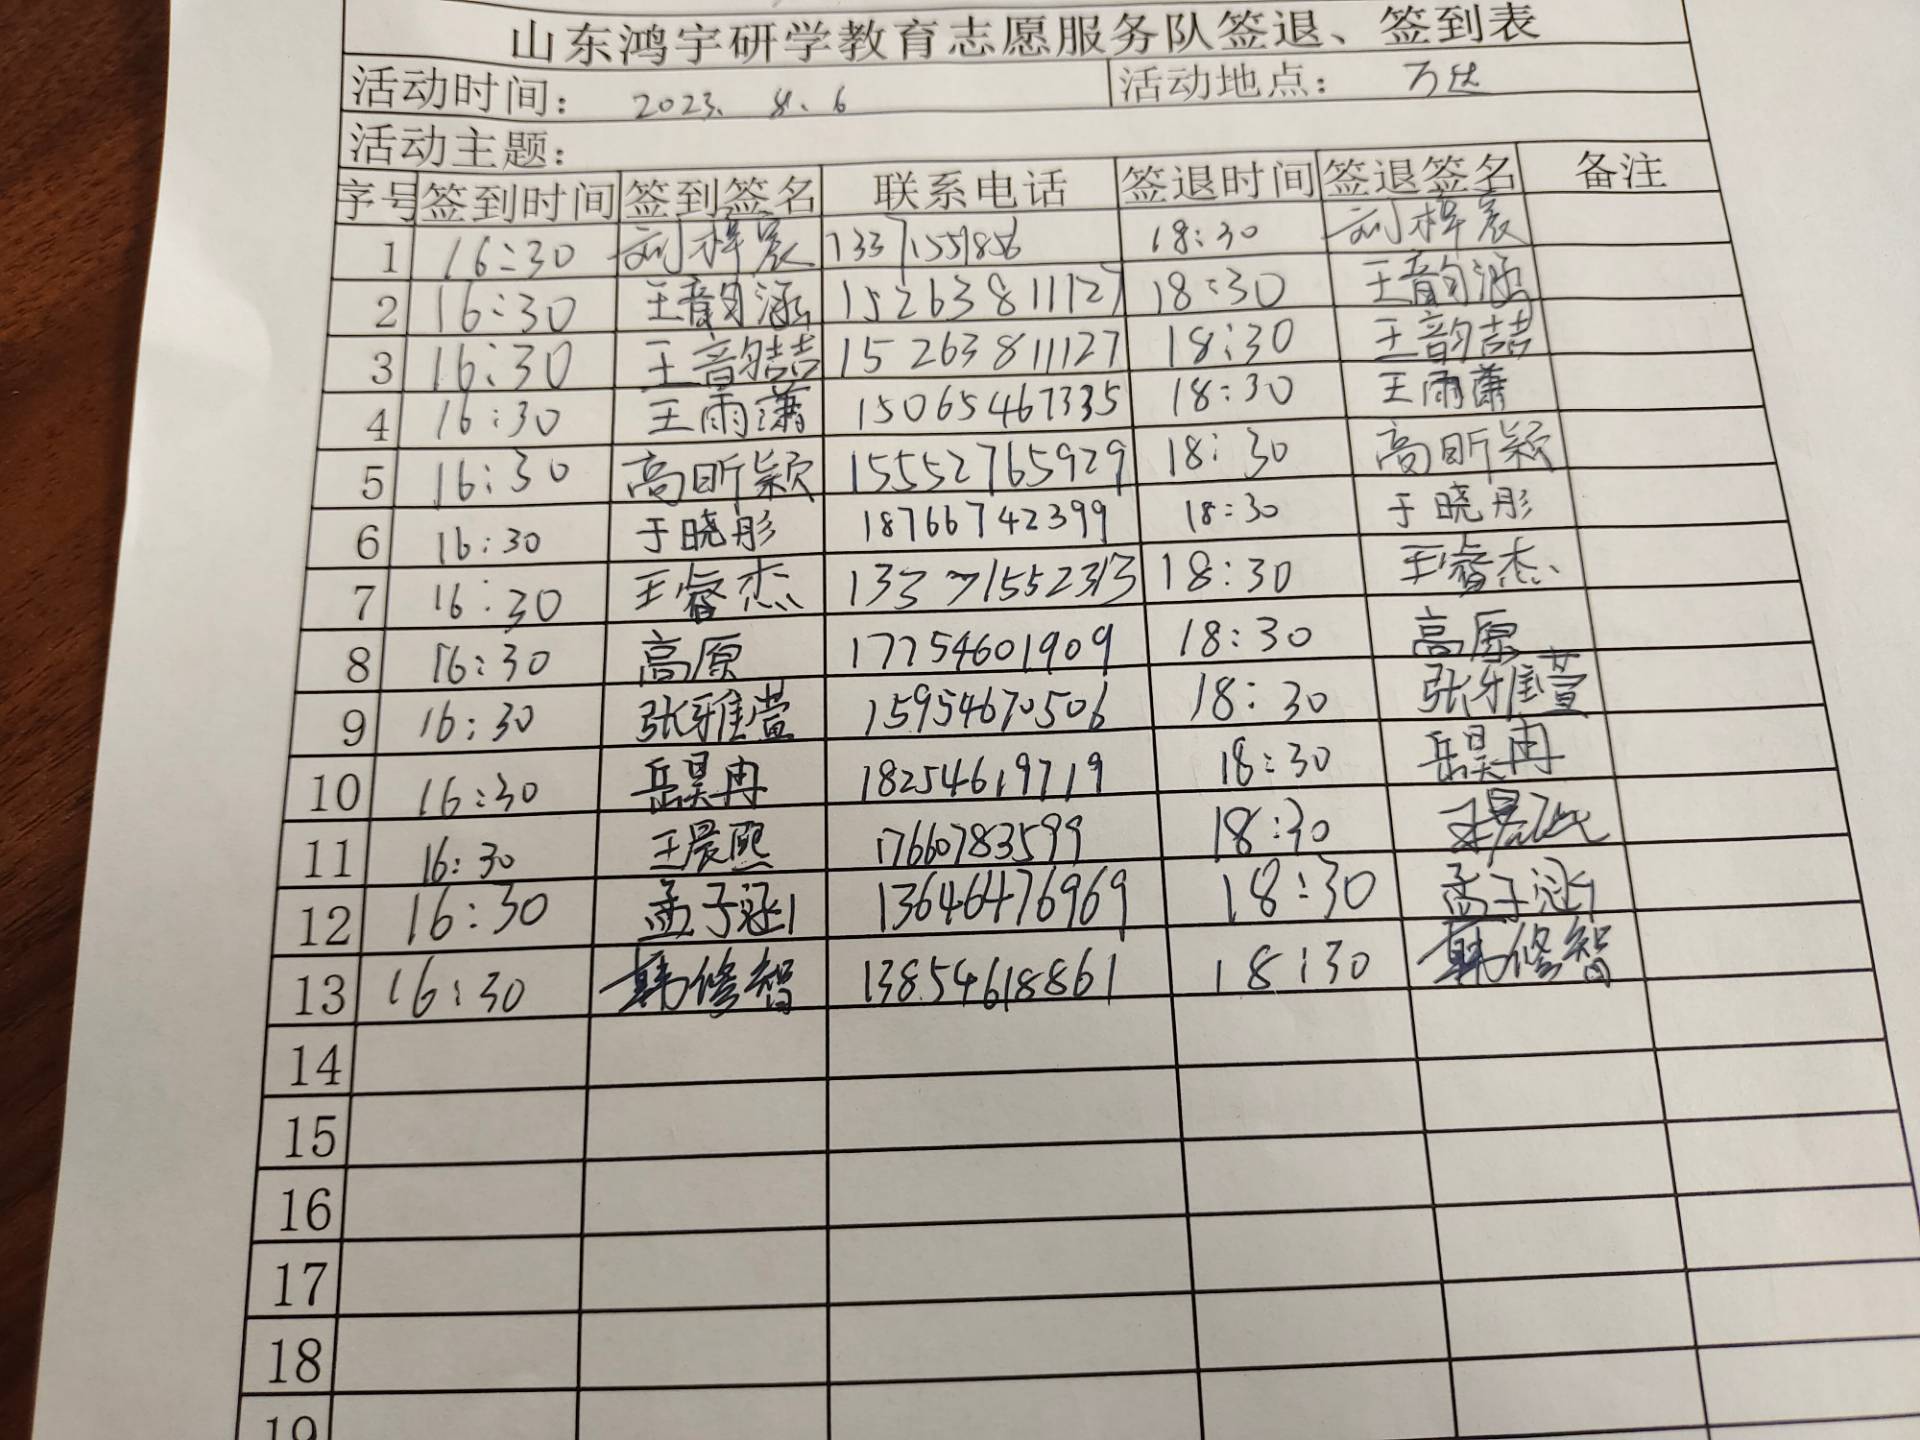 山东鸿宇研学教育志愿服务队签退、签到表
活动时间： 2023. 8. 6 活动地点： 万达
活动主题：
序号 签到时间 签到签名 联系电话 签退时间 签退签名 备注
1 16:30 刘梓宸 13371551856 18:30 刘梓宸
2 16:30 王韵涵 15263811127 18:30 王韵涵
3 16:30 王韵喆 15263811127 18:30 王韵喆
4 16:30 王雨潇 15065467335 18:30 王雨萧
5 16:30 高昕颖 15552765929 18:30 高昕颖
6 16:30 于晓彤 18766742399 18:30 于晓彤
7 16:30 王睿杰 13371552313 18:30 王睿杰
8 16:30 高原 17754601909 18:30 高原
9 16:30 张雅萱 15954670506 18:30 张雅萱
10 16:30 岳昊冉 18254619719 18:30 岳昊冉
11 16:30 王晨熙 17660783599 18:30
12 16:30 孟子涵 13646476969 18:30 孟子涵
13 16:30 韩修智 13854618861 18:30 韩修智
14
15
16
17
18
19